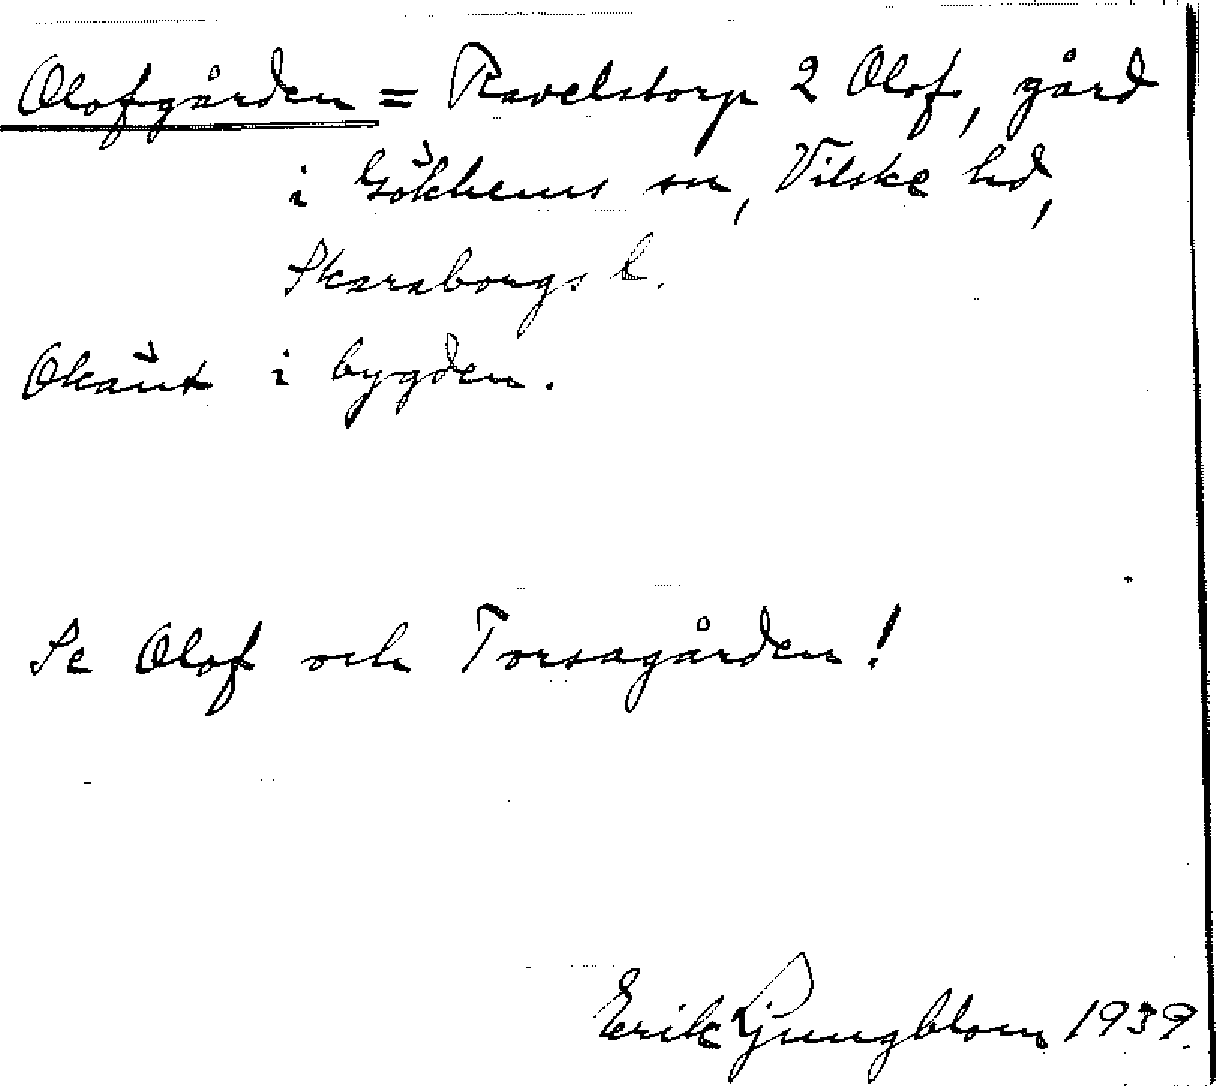 Olofgården = Ravelstorp 2 Olof, gård
i Gökhems sn, Vilske hd,
Skaraborgs l.
Okänt i bygden.
Se Olof och Torsagården!
Erik Ljungblom 1939.